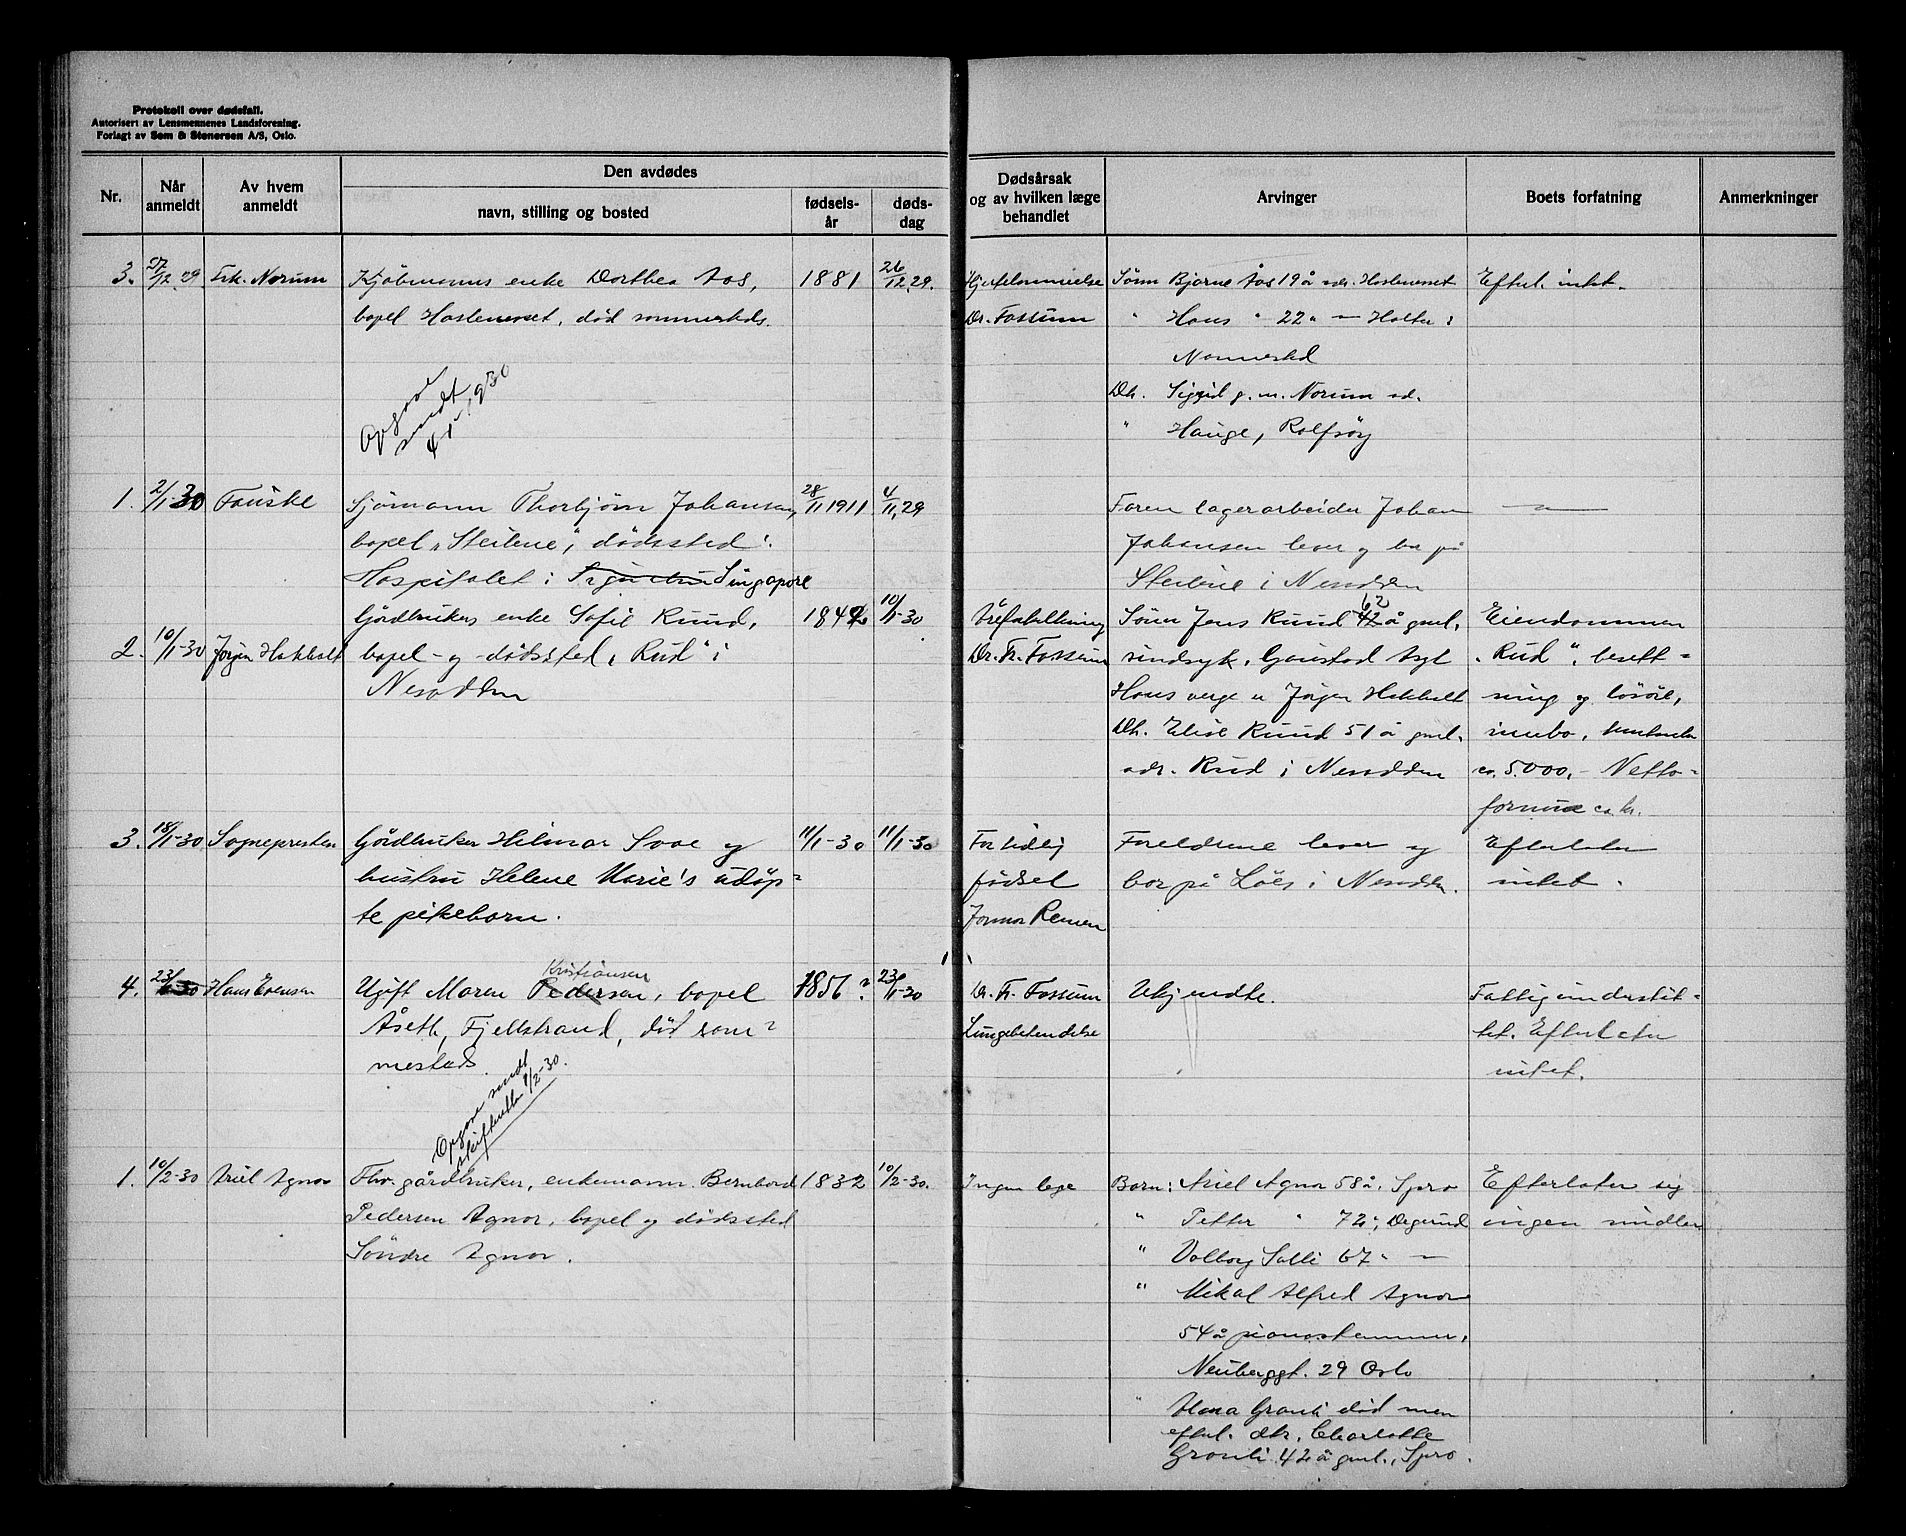 Protokoll over dødsfall.
Autorisert av Lensmennenes Landsforening.
Forlagt av Sem & Stenersen A/S, Oslo.
Nr.
Når anmeldt
Av hvem anmeldt
Den avdødes
navn, stilling og bosted
fødsels-år
døds-dag
Dødsårsak og av hvilken læge behandlet
Arvinger
Boets forfatning
Anmerkninger
3. 27/12.29 Frk. Norum
Kjøbmanns enke Dorthea Aas,
bopel Hasleneset, død sammesteds.
1881 26/12.29.
Hjertelammelse
Dr. Fossum
Sønn Bjarne Aas 19 å adr. Hasleneset
" Hans " 22 " — Halter i
Nannestad
Dtr. Sigrid g. m. Norum ad.
" Hauge, Rolfsøy
Efterl. intet.
Opgave
sendt
4/1-1930
1. 2/1-30 Fauske
Sjømann Thorbjørn Johansen,
bopel "Steilene", dødssted:
Hospitalet i Singapore
28/11 1911 4/11.29
Faren lagerarbeider Johan
Johansen lever og bor på
Steilene i Nesodden
—"—
2. 10/1-30 Jørgen Hakholt
Gårdbrukers enke Sofie Ruud,
bopel - og - dødssted "Rud" i
Nesodden
1842 10/1-30
Dr. Fr. Fossum
Sønn Jens Ruud 62 å gml.
sindsyk, Gaustad Asyl
Hans verge er Jørgen Hakholt
Dtr. Elise Ruud 51 å gml.
adr. Rud i Nesodden
Eiendommen
"Rud", besett-
ning og løsøre,
innbo,
ca. 5.000,- Netto-
formue ca kr.
3. 18/1-30 Sognepresten
Gårdbruker Hilmar Sooe og
hustru Helene Marie's udøp-
te pikebarn.
11/1-30 11/1-30
For tidlig
fødsel
Jormor Remen
Foreldrene lever og
bor på Løes i Nesodden.
Efterlater
intet.
4. 23/1-30 Hans Evensen
Kristiansen
Ugift Maren Pedersen, bopel
Åseth, Fjellstrand, død sam-
mesteds.
1856? 23/1-30
Dr. Fr. Fossum
Lungebetendelse
Ukjendte.
Fattigunderstøt-
tet. Efterlater
intet.
Opgave sendt
skifteretten 1/2-30.
1. 10/2-30 Ariel Agnor
Fhv. gårdbruker, enkemann Bernhard
Pedersen Agnor, bopel og dødssted
Søndre Agnor.
1832 10/2-30.
Ingen lege
Barn: Ariel Agnor 58 å, Spro
" Petter " 72 ", Degerud
" Valborg Salli 67 " —
" Mikal Alfred Agnor
54 å pianostemmer,
Neuberggt. 29 Oslo
" Hana Granli død men
efterl. dtr. Charlotte
Granli 42 å gml., Spro.
Efterlater sig
ingen midler